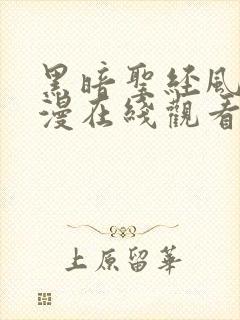 黑暗聖経風
漫在綫觀看
上原留華